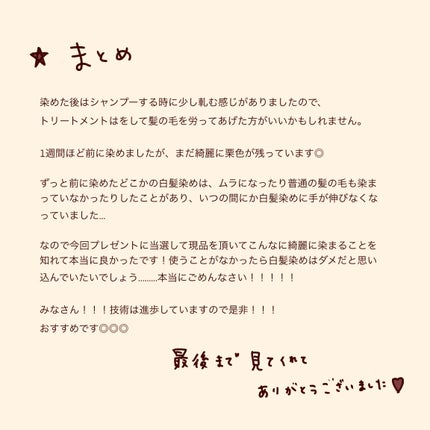 ★ まとめ
染めた後はシャンプーする時に少し軋む感じがありましたので、
トリートメントはをして髪の毛を労ってあげた方がいいかもしれません。
1週間ほど前に染めましたが、まだ綺麗に栗色が残っています◎
ずっと前に染めたどこかの白髪染めは、ムラになったり普通の髪の毛も染ま
っていなかったりしたことがあり、いつの間にか白髪染めに手が伸びなくな
っていました...
なので今回プレゼントに当選して現品を頂いてこんなに綺麗に染まることを
知れて本当に良かったです！使うことがなかったら白髪染めはダメだと思い
込んでいたいでしょう.........本当にごめんなさい！！！！！
みなさん！！！技術は進歩していますので是非！！！
おすすめです◎◎◎
最後まで 見てくれて
ありがとうございました♥